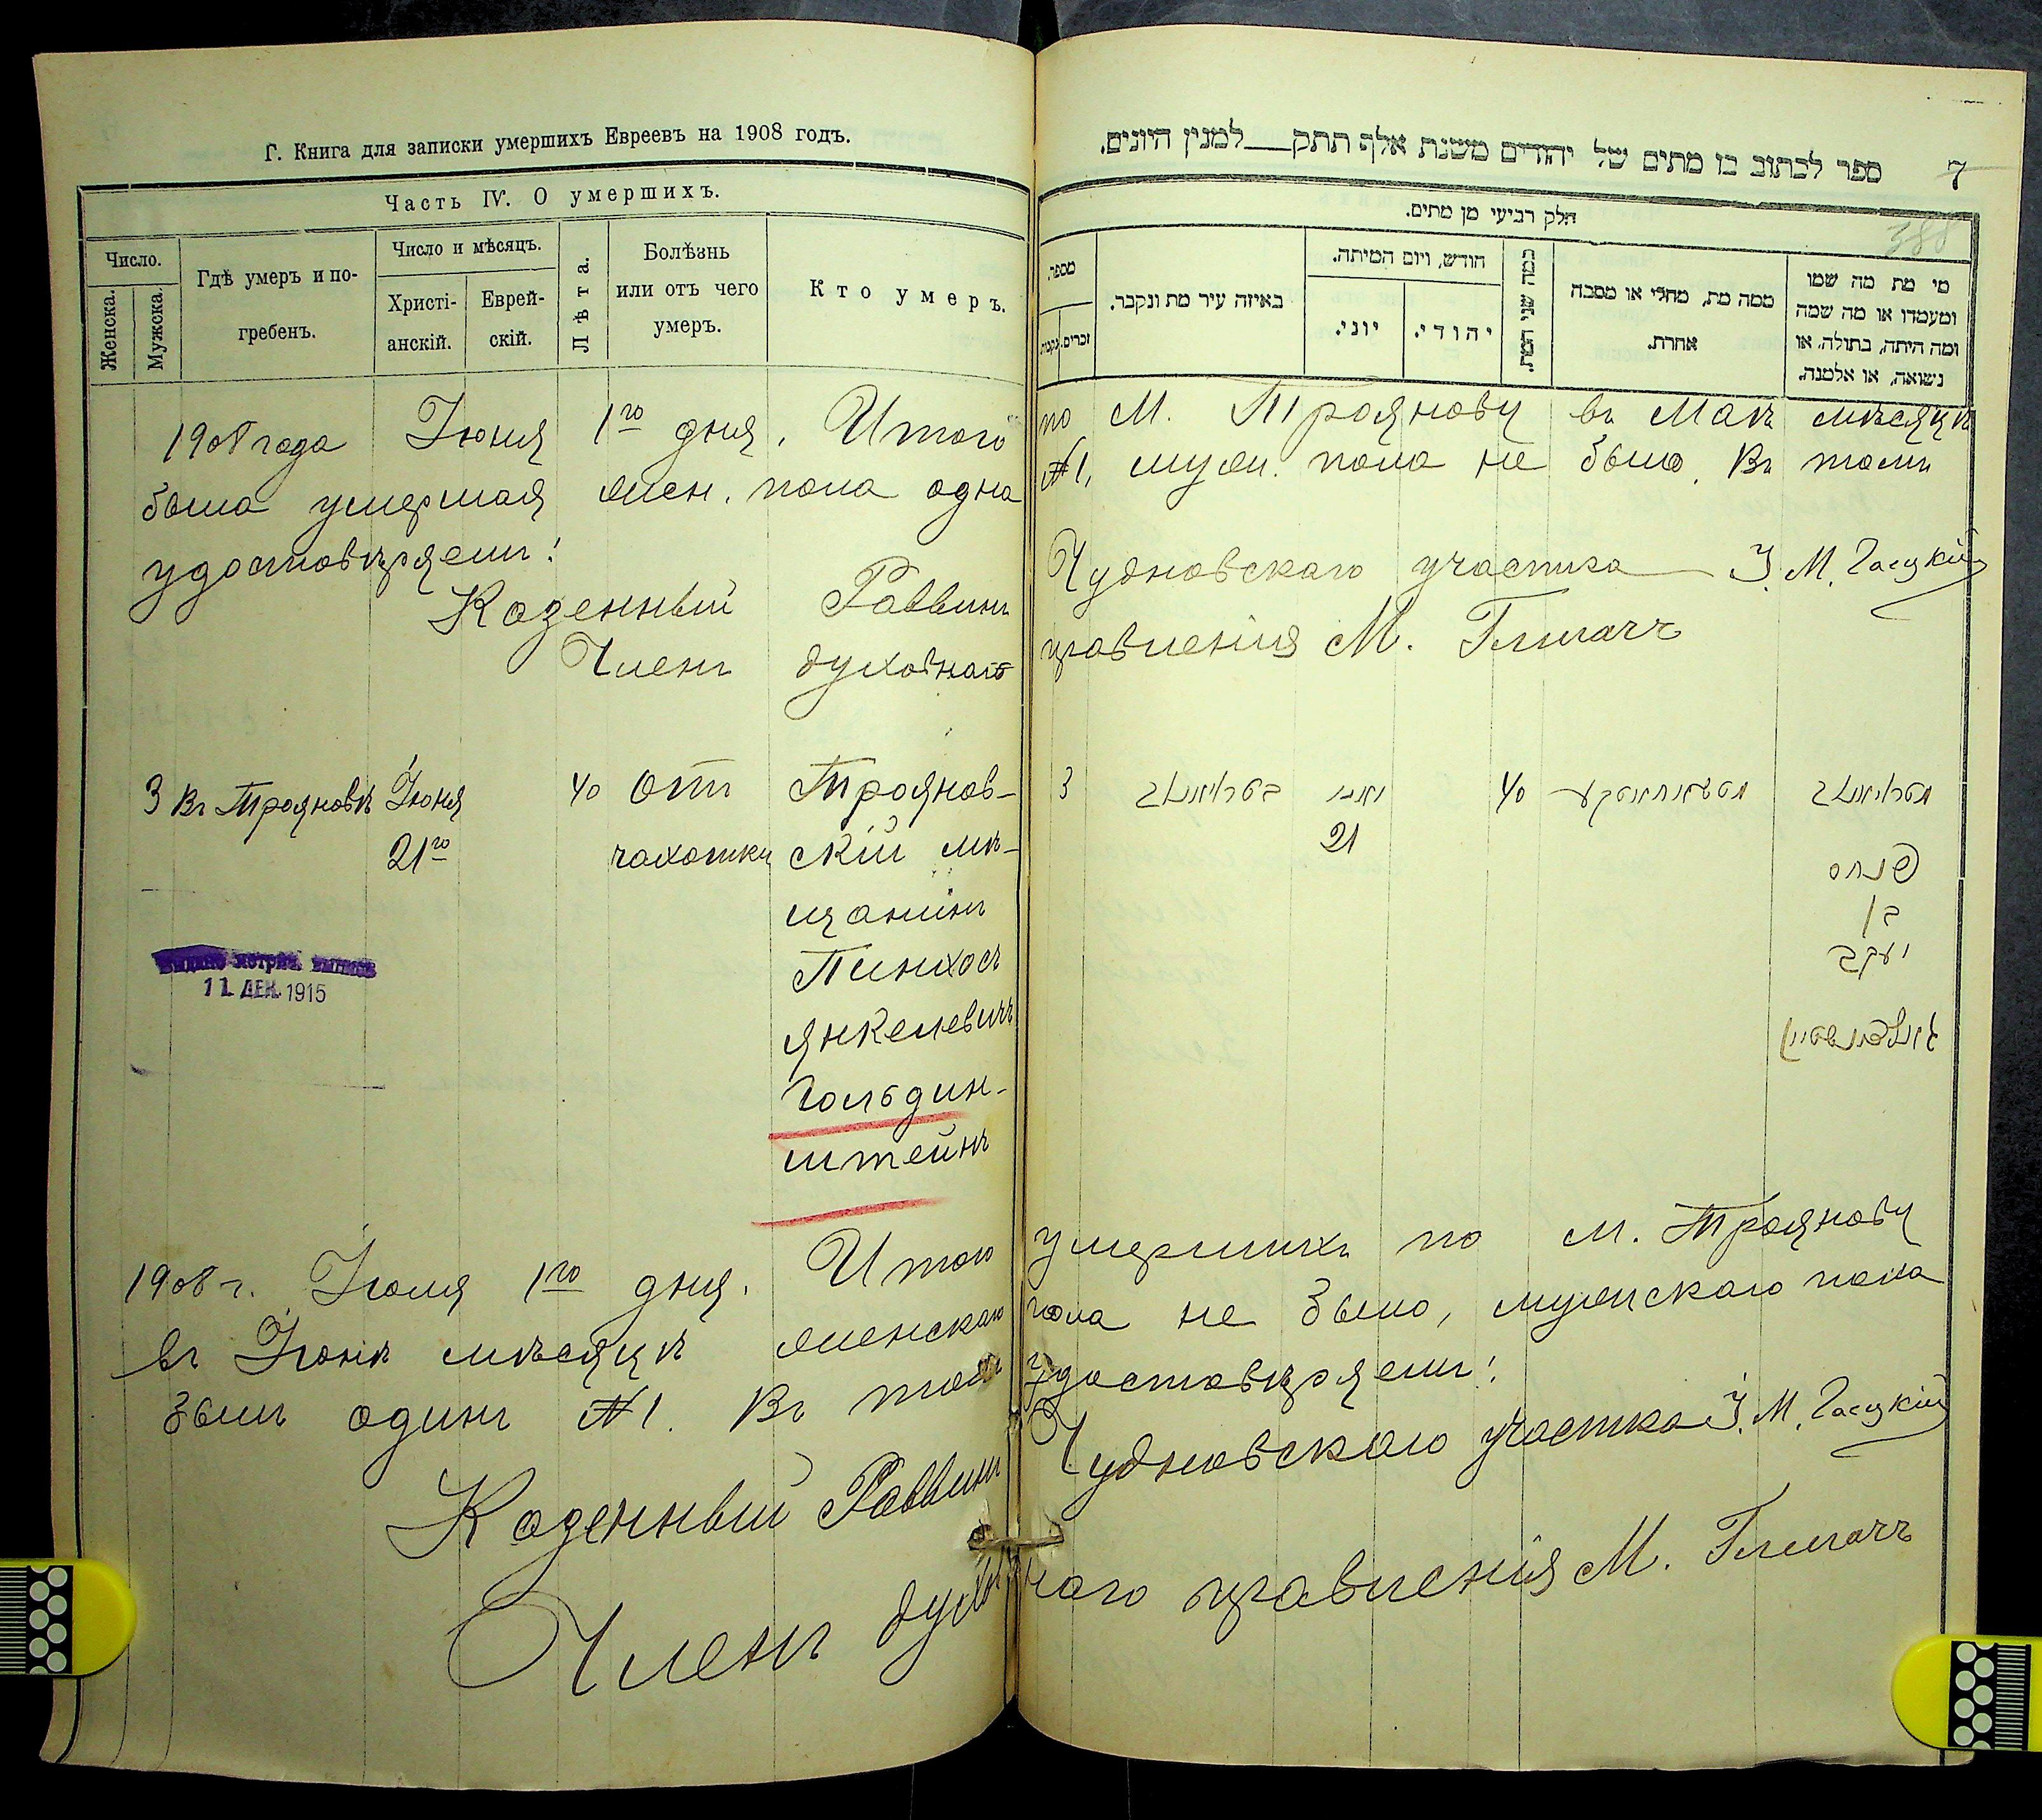 Г. Книга для записки умершихъ Евреевъ на 1908 годъ.
Часть IV. О умершихъ.
Число.
Женска.
Мужска.
Гдѣ умеръ и по-
гребенъ.
Число и мѣсяцъ.
Христі-
анскій.
Еврей-
скій.
Лѣта.
Болѣзнь
или отъ чего
умеръ.
Кто умеръ.
1908 года Іюня 1го дня. Итого
была умершая жен. пола одна
удостовѣряемъ!
Казенный Раввинъ
Членъ духовнаго
3 Въ Трояновѣ Іюня 40 Отъ Троянов-
21го чахотки скій мѣ-
щанинъ
Пинхосъ
Янкелевичъ
Гольдин-
штейнъ
Выдана метрич. выпись
11. ДЕК. 1915
1908 г. Іюля 1го дня. Итого
въ Іюнѣ мѣсяцѣ женскаго
былъ одинъ №1. Въ томъ
Казенный Раввинъ
Членъ духов
7
ספר לכתוב בו מתים של יהודים משנת אלף תתק למנין היונים.
388
חלק רביעי מן מתים.
מספר.
זכרים.
נקבות.
באיזה עיר מת ונקבר.
חודש, ויום המיתה.
יוני.
יהודי.
כמה שני המת.
ממה מת, מחלי או מסבה
אחרת.
מי מת מה שמו
ומעמדו או מה שמה
ומה היתה, בתולה, או
נשואה, או אלמנה.
по М. Троянову въ Маѣ мѣсяцѣ
№1, муж. пола не было. Въ томъ
Чудновскаго участка І. М. Гасцкій
правленія М. Глигачъ
3 בטראיאנאוו יוני 40 טראיאנאוו
21
פנחס
בן
יעקב
גאלדינשטיין
умершихъ по м. Троянову
пола не было, мужскаго пола
удостовѣряемъ!
Чудновскаго участка І. М. Гасцкій
наго правленія М. Глигачъ